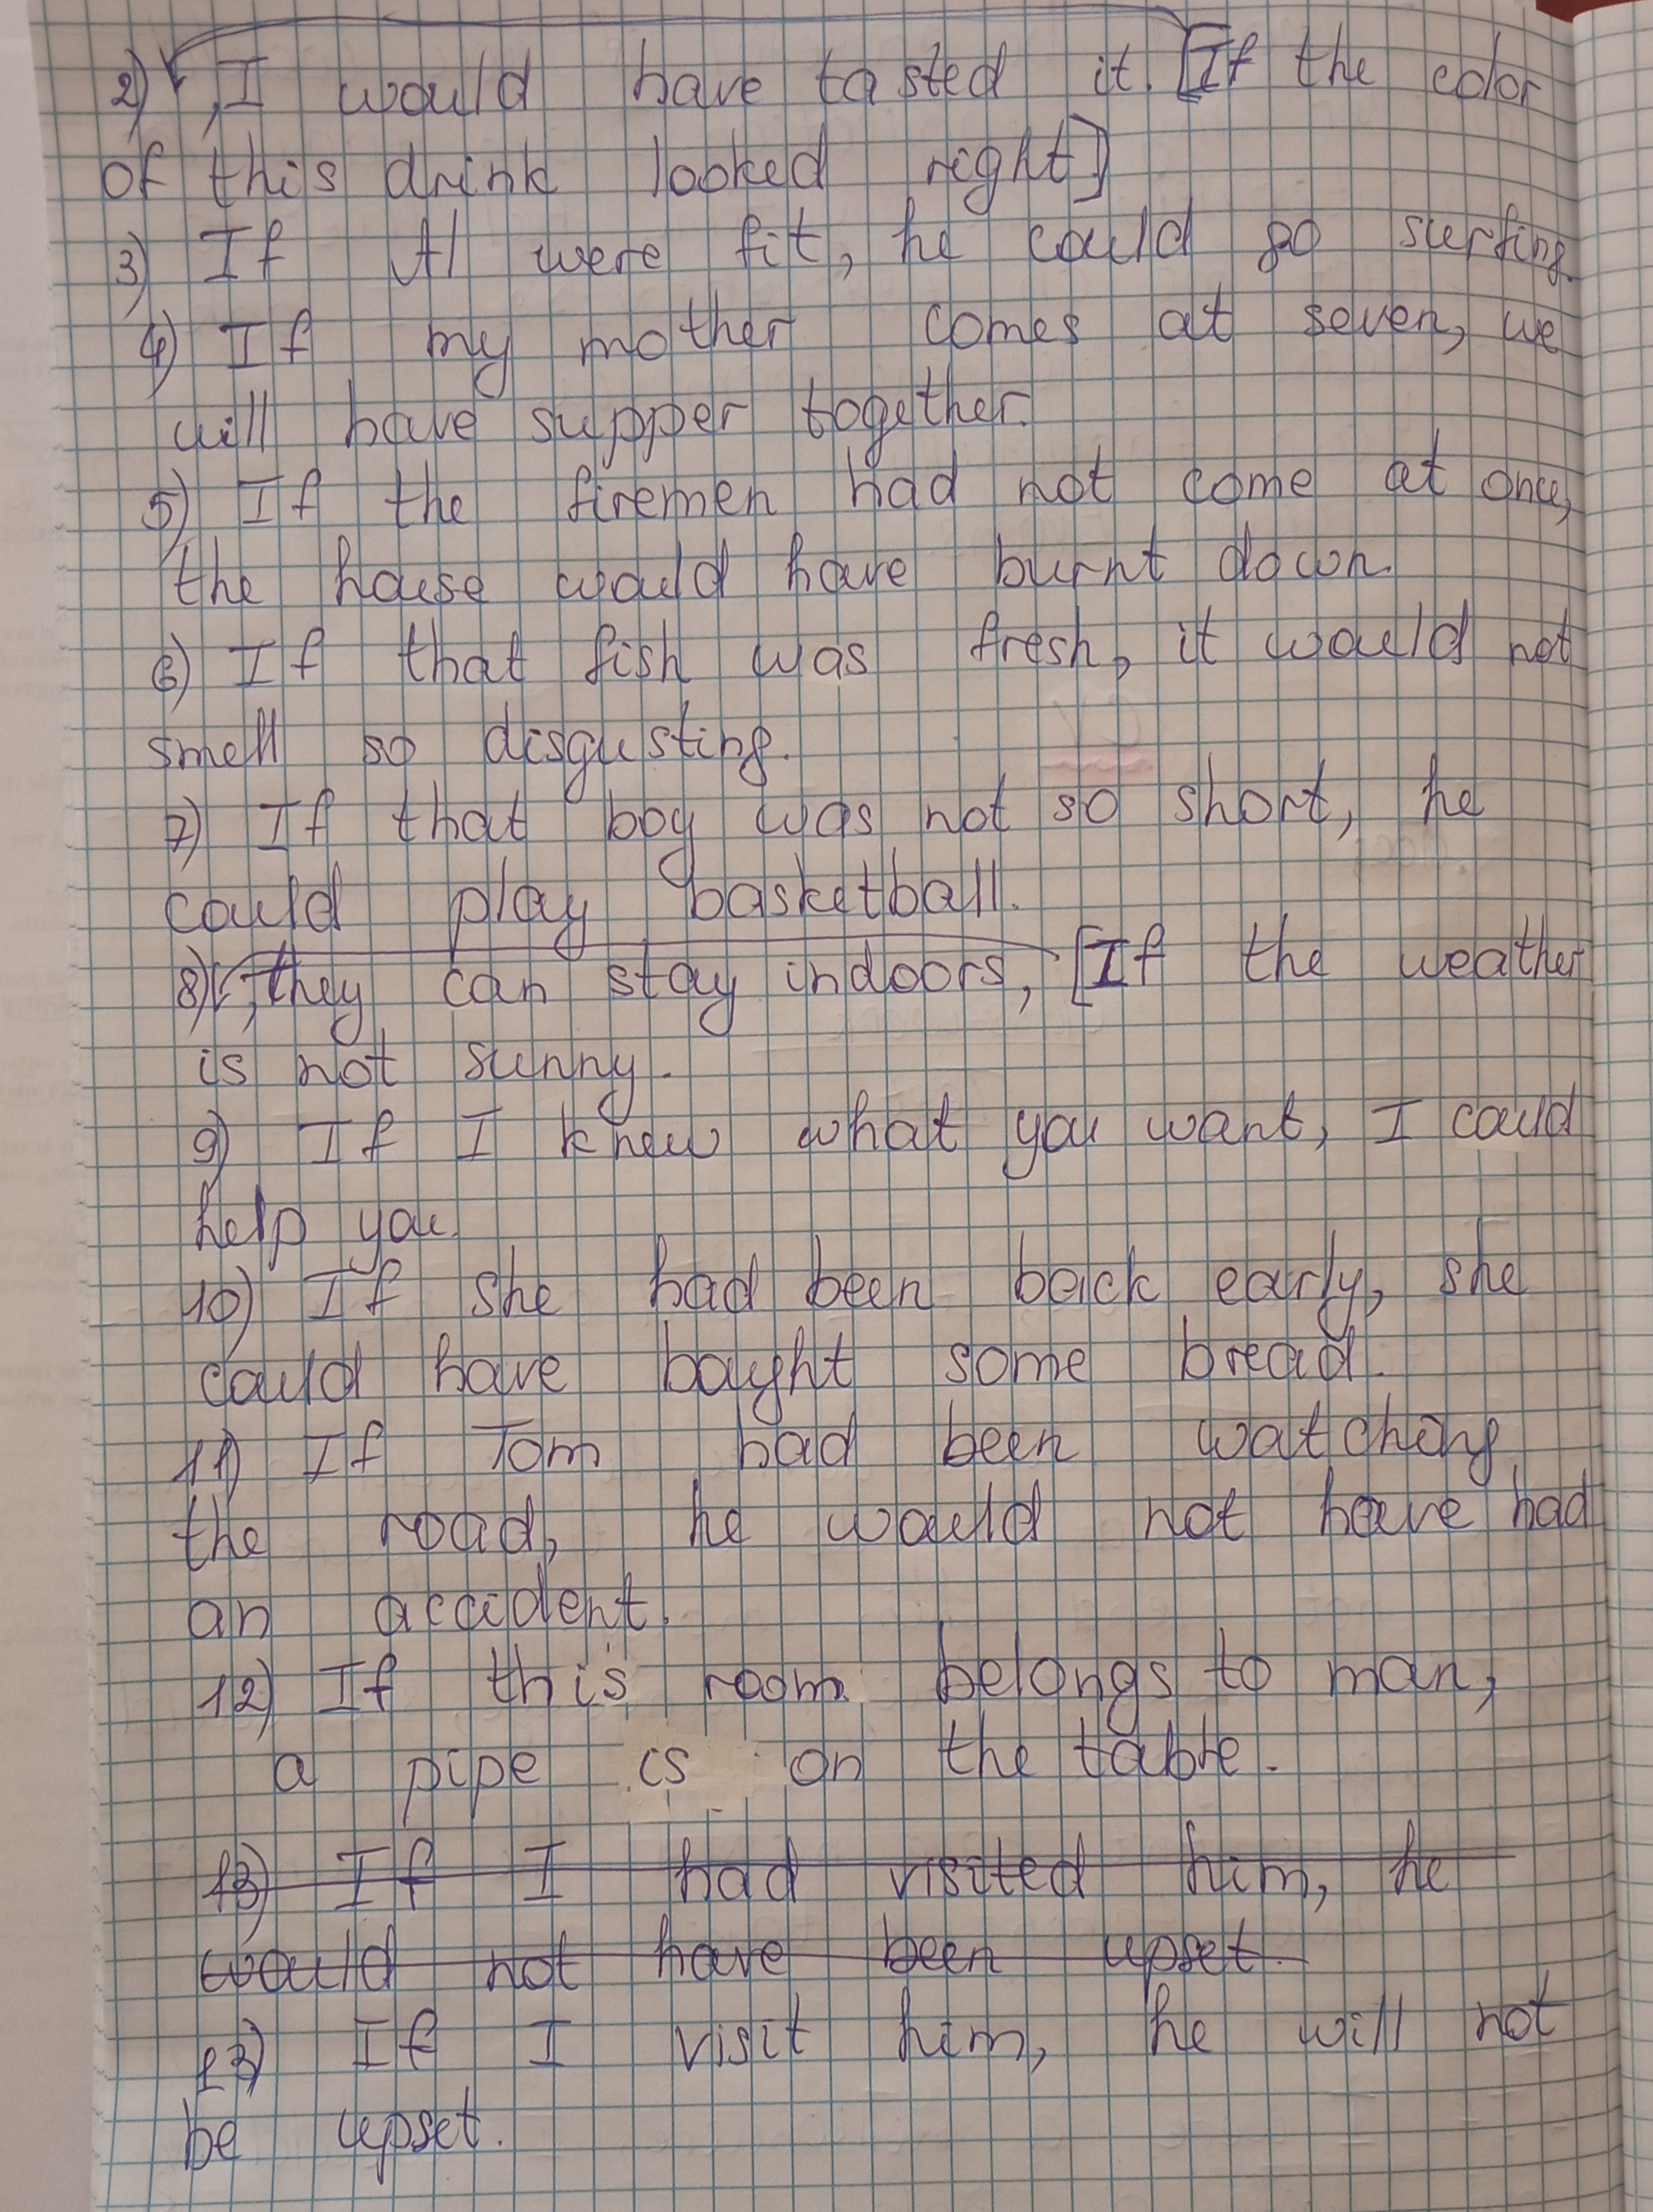 2) , I would have tasted it. [If the color
of this drink looked right]
3) If Al were fit, he could go surfing.
4) If my mother comes at seven, we
will have supper together.
5) If the firemen had not come at once,
the house would have burnt down.
6) If that fish was fresh, it would not
smell so disgusting.
7) If that boy was not so short, he
could play basketball.
8) , they can stay indoors, [If the weather
is not sunny.
9) If I knew what you want, I could
help you.
10) If she had been back early, she
could have bought some bread.
11) If Tom had been watching
the road, he would not have had
an accident.
12) If this room belongs to man,
a pipe is on the table.
13) If I had visited him, he
would not have been upset.
13) If I visit him, he will not
be upset.